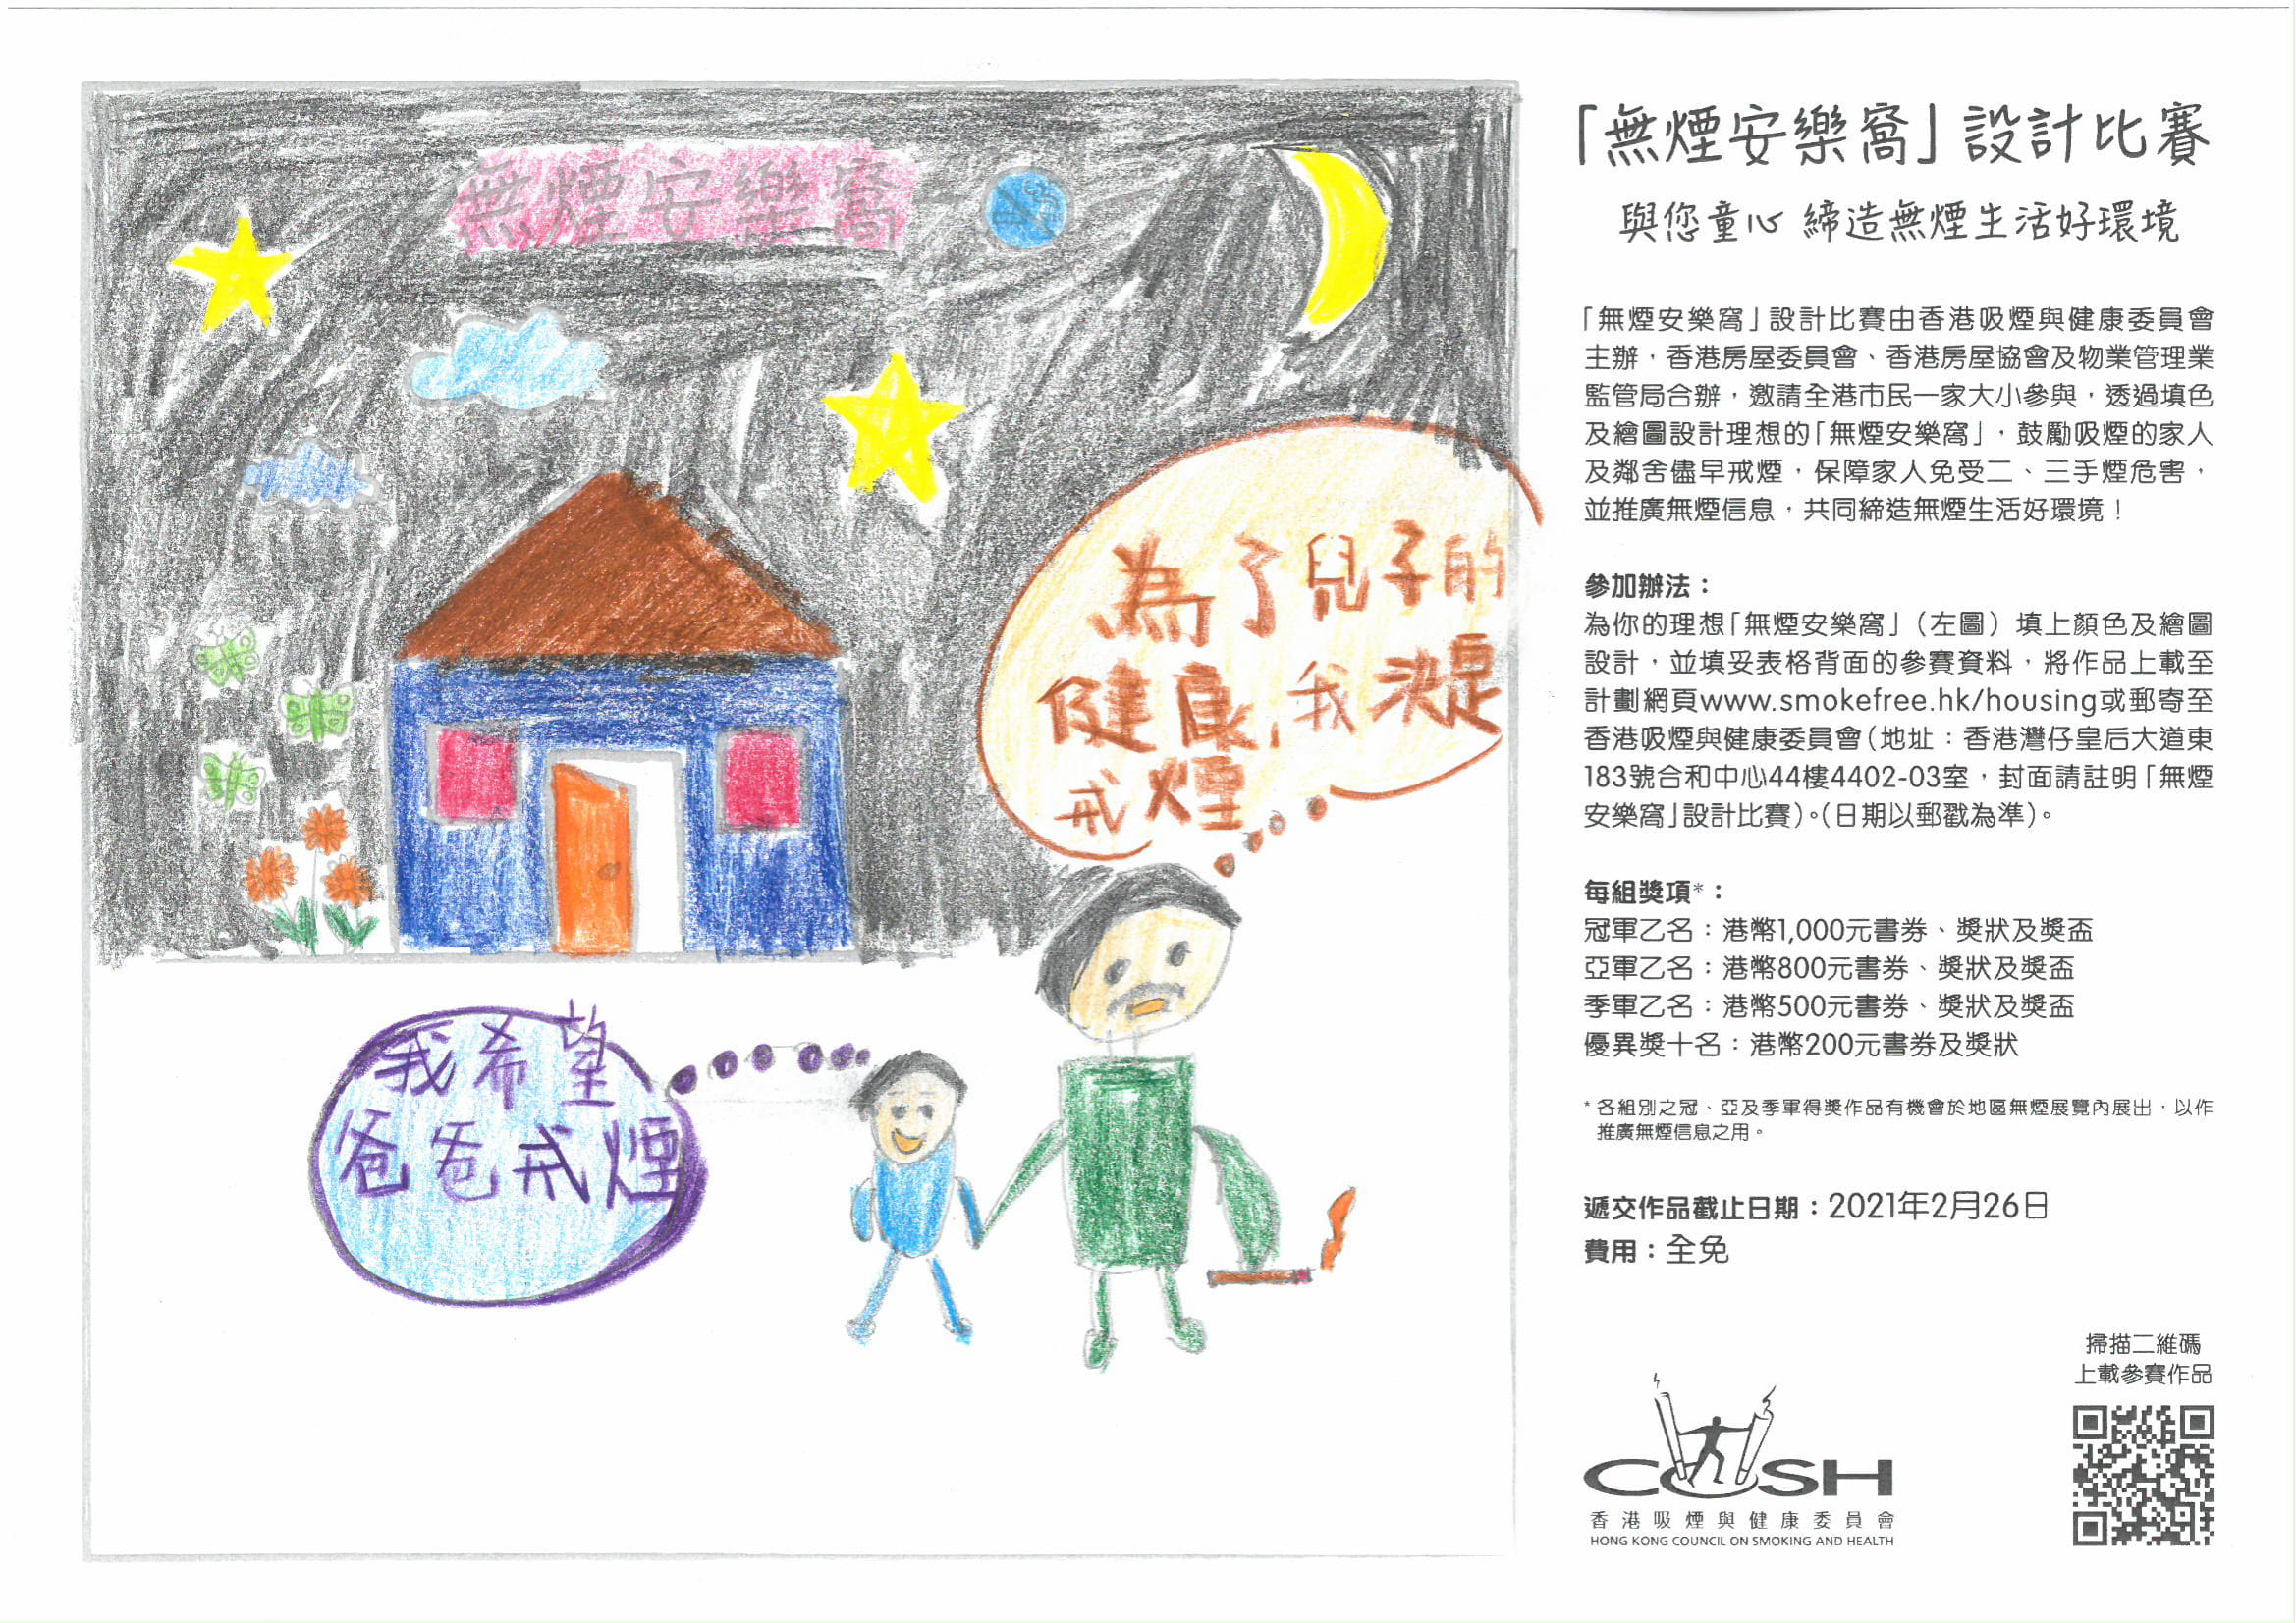 無煙安樂窩
為了兒子的
健康,我決定
戒煙
我希望
爸爸戒煙
「無煙安樂窩」設計比賽
與您童心 締造無煙生活好環境
「無煙安樂窩」設計比賽由香港吸煙與健康委員會
主辦，香港房屋委員會、香港房屋協會及物業管理業
監管局合辦，邀請全港市民一家大小參與，透過填色
及繪圖設計理想的「無煙安樂窩」，鼓勵吸煙的家人
及鄰舍儘早戒煙，保障家人免受二、三手煙危害，
並推廣無煙信息，共同締造無煙生活好環境！
參加辦法：
為你的理想「無煙安樂窩」（左圖）填上顏色及繪圖
設計，並填妥表格背面的參賽資料，將作品上載至
計劃網頁www.smokefree.hk/housing或郵寄至
香港吸煙與健康委員會（地址：香港灣仔皇后大道東
183號合和中心44樓4402-03室，封面請註明「無煙
安樂窩」設計比賽）。（日期以郵戳為準）。
每組獎項*：
冠軍乙名：港幣1,000元書券、獎狀及獎盃
亞軍乙名：港幣800元書券、獎狀及獎盃
季軍乙名：港幣500元書券、獎狀及獎盃
優異獎十名：港幣200元書券及獎狀
* 各組別之冠、亞及季軍得獎作品有機會於地區無煙展覽內展出，以作
推廣無煙信息之用。
遞交作品截止日期：2021年2月26日
費用：全免
掃描二維碼
上載參賽作品
COSH
香港吸煙與健康委員會
HONG KONG COUNCIL ON SMOKING AND HEALTH